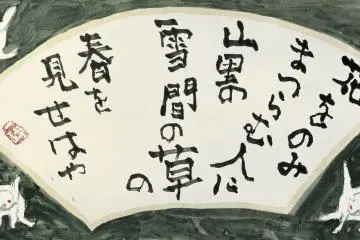 花をのみ
まつらむ人に
山里の
雪間の草の
春を
見せはや